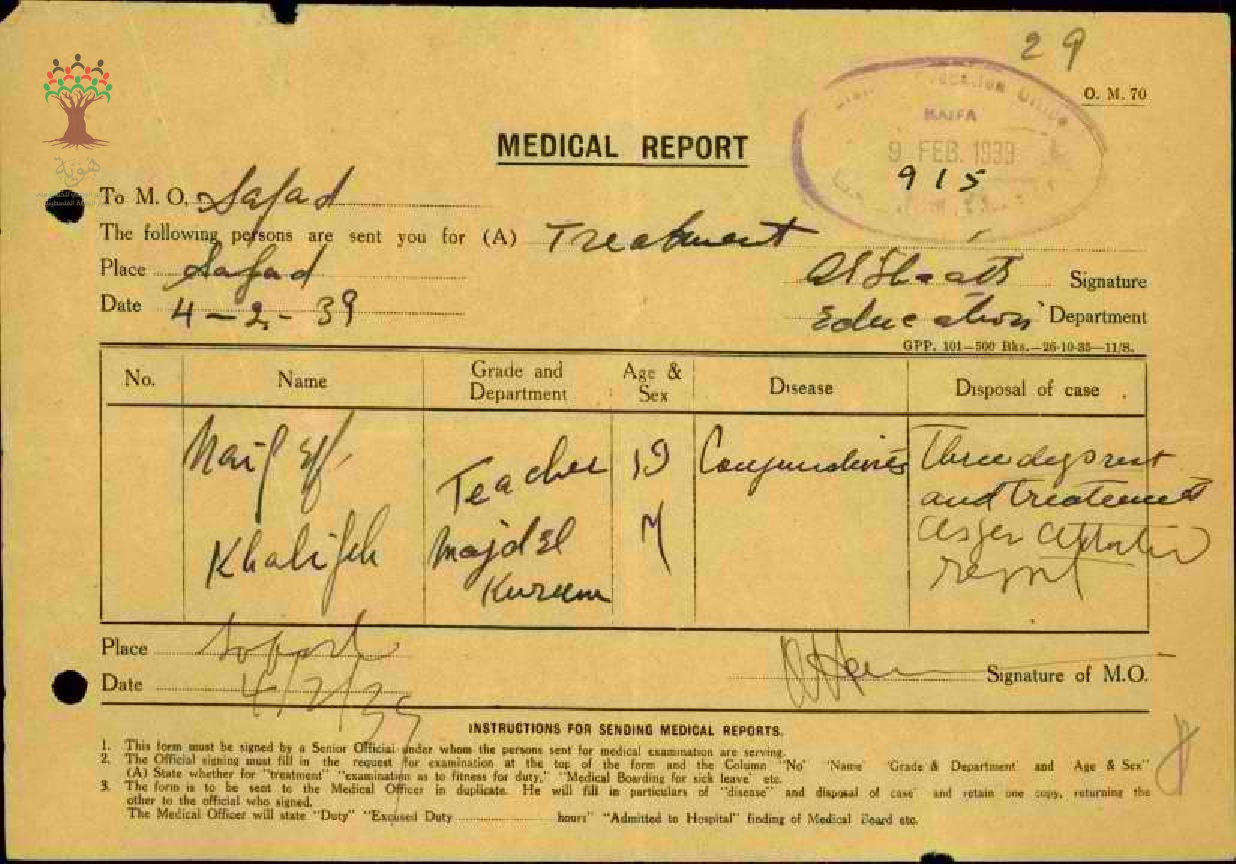 29
O. M. 70
HAIFA
9 FEB. 1939
915
MEDICAL REPORT
هوية
To M. O. Safad
The following persons are sent you for (A) Treatment
Place Safad
Signature
Date 4-2-39
Education Department
GPP. 101—500 Bks.—26-10-35—11/8.
No. Name Grade and Department Age & Sex Disease Disposal of case
Naif Eff. Teacher 19 Three days rest
and treatment
Khalifeh Majd El M
Kurum report
Place Safad
Date 4/2/39 Signature of M.O.
INSTRUCTIONS FOR SENDING MEDICAL REPORTS.
1. This form must be signed by a Senior Official under whom the persons sent for medical examination are serving.
2. The Official signing must fill in the request for examination at the top of the form and the Column "No" 'Name' 'Grade & Department' and Age & Sex"
(A) State whether for "treatment" "examination as to fitness for duty," "Medical Boarding for sick leave' etc.
3. The form is to be sent to the Medical Officer in duplicate. He will fill in particulars of "disease" and disposal of case" and retain one copy, returning the
other to the official who signed.
The Medical Officer will state "Duty" "Excused Duty hours" "Admitted to Hospital" finding of Medical Board etc.